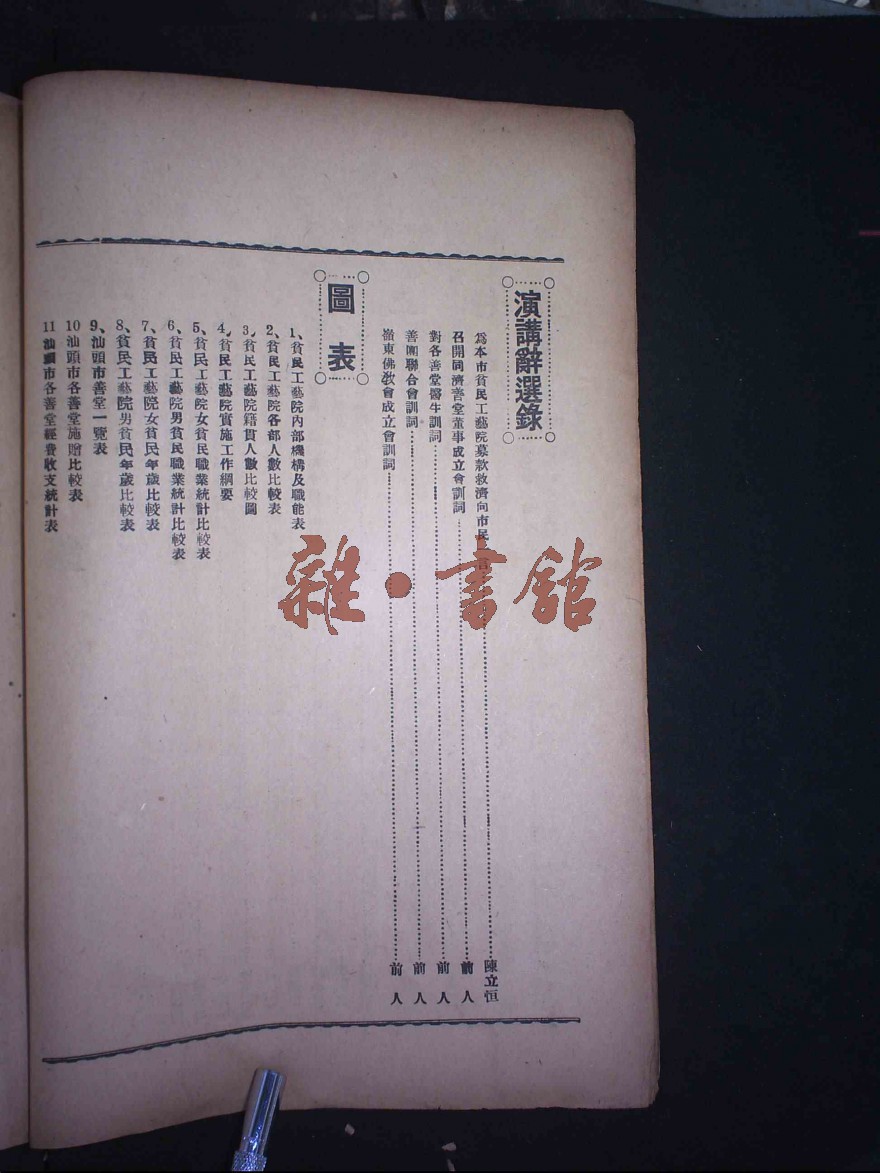 演講辭選錄
爲本市貧民工藝院募款救濟向市民言……陳立恒
召開同濟善堂董事成立會訓詞……前人
對各善堂醫生訓詞……前人
善團聯合會訓詞……前人
嶺東佛敎會成立會訓詞……前人
圖表
1、貧民工藝院內部機構及職能表
2、貧民工藝院各部人數比較表
3、貧民工藝院籍貫人數比較圖
4、貧民工藝院實施工作綱要
5、貧民工藝院女貧民職業統計比較表
6、貧民工藝院男貧民職業統計比較表
7、貧民工藝院女貧民年歲比較表
8、貧民工藝院男貧民年歲比較表
9、汕頭市善堂一覽表
10汕頭市各善堂施贈比較表
11汕頭市各善堂經費收支統計表
雜·書館